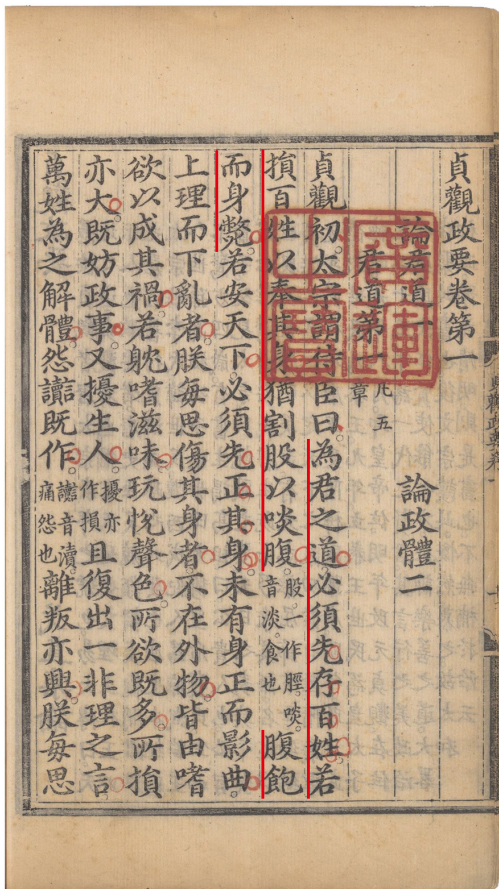 貞觀政要卷第一
論君道一 論政體二
君道第一 凡五章
貞觀初太宗謂侍臣曰為君之道必須先存百姓若
損百姓以奉其身猶割股以啖腹股一作脛啖音淡食也腹飽
而身斃若安天下必須先正其身未有身正而影曲
上理而下亂者朕每思傷其身者不在外物皆由嗜
欲以成其禍若躭嗜滋味玩悅聲色所欲既多所損
亦大既妨政事又擾生人擾亦作損且復出一非理之言
萬姓為之解體怨讟既作讟音瀆痛怨也離叛亦興朕每思